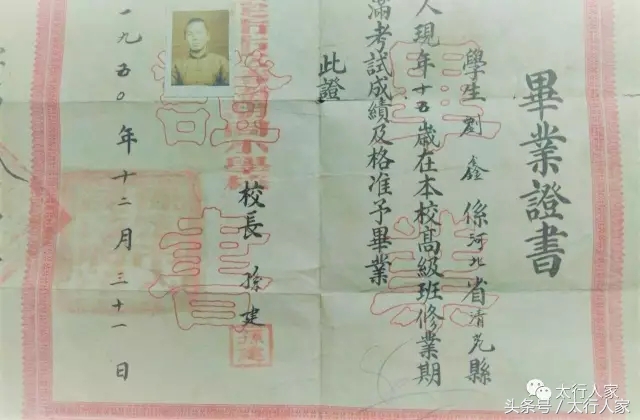 畢業證書
學生劉鑫係河北省清苑縣
人現年十五歲在本校高級班修業期
滿考試成績及格准予畢業
此證
校長 孫建
孫建
一九五〇年十二月三十一日
畢業證書
太行人家
头条号/太行人家